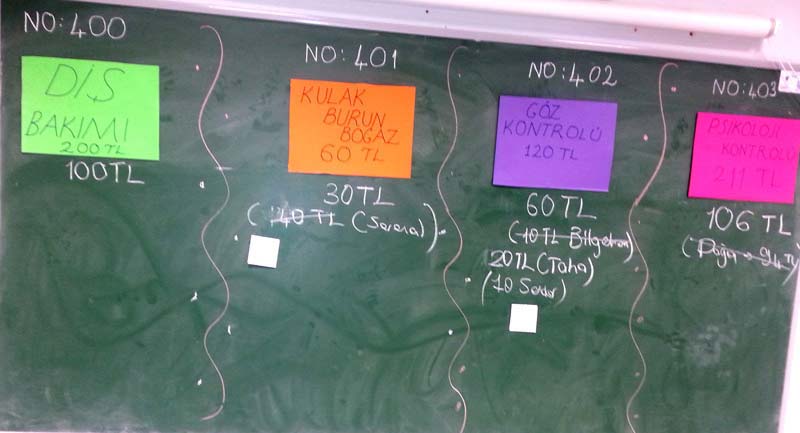 NO: 400
DİŞ
BAKIMI
200 TL
100TL
NO: 401
KULAK
BURUN
BOĞAZ
60 TL
30TL
(40 TL (Serenal)
NO: 402
GÖZ
KONTROLÜ
120 TL
60 TL
(10 TL
20TL (Taha)
(10
NO: 403
PSİKOLOJİ
KONTROLÜ
211 TL
106 TL
(Doğa → 94 TL